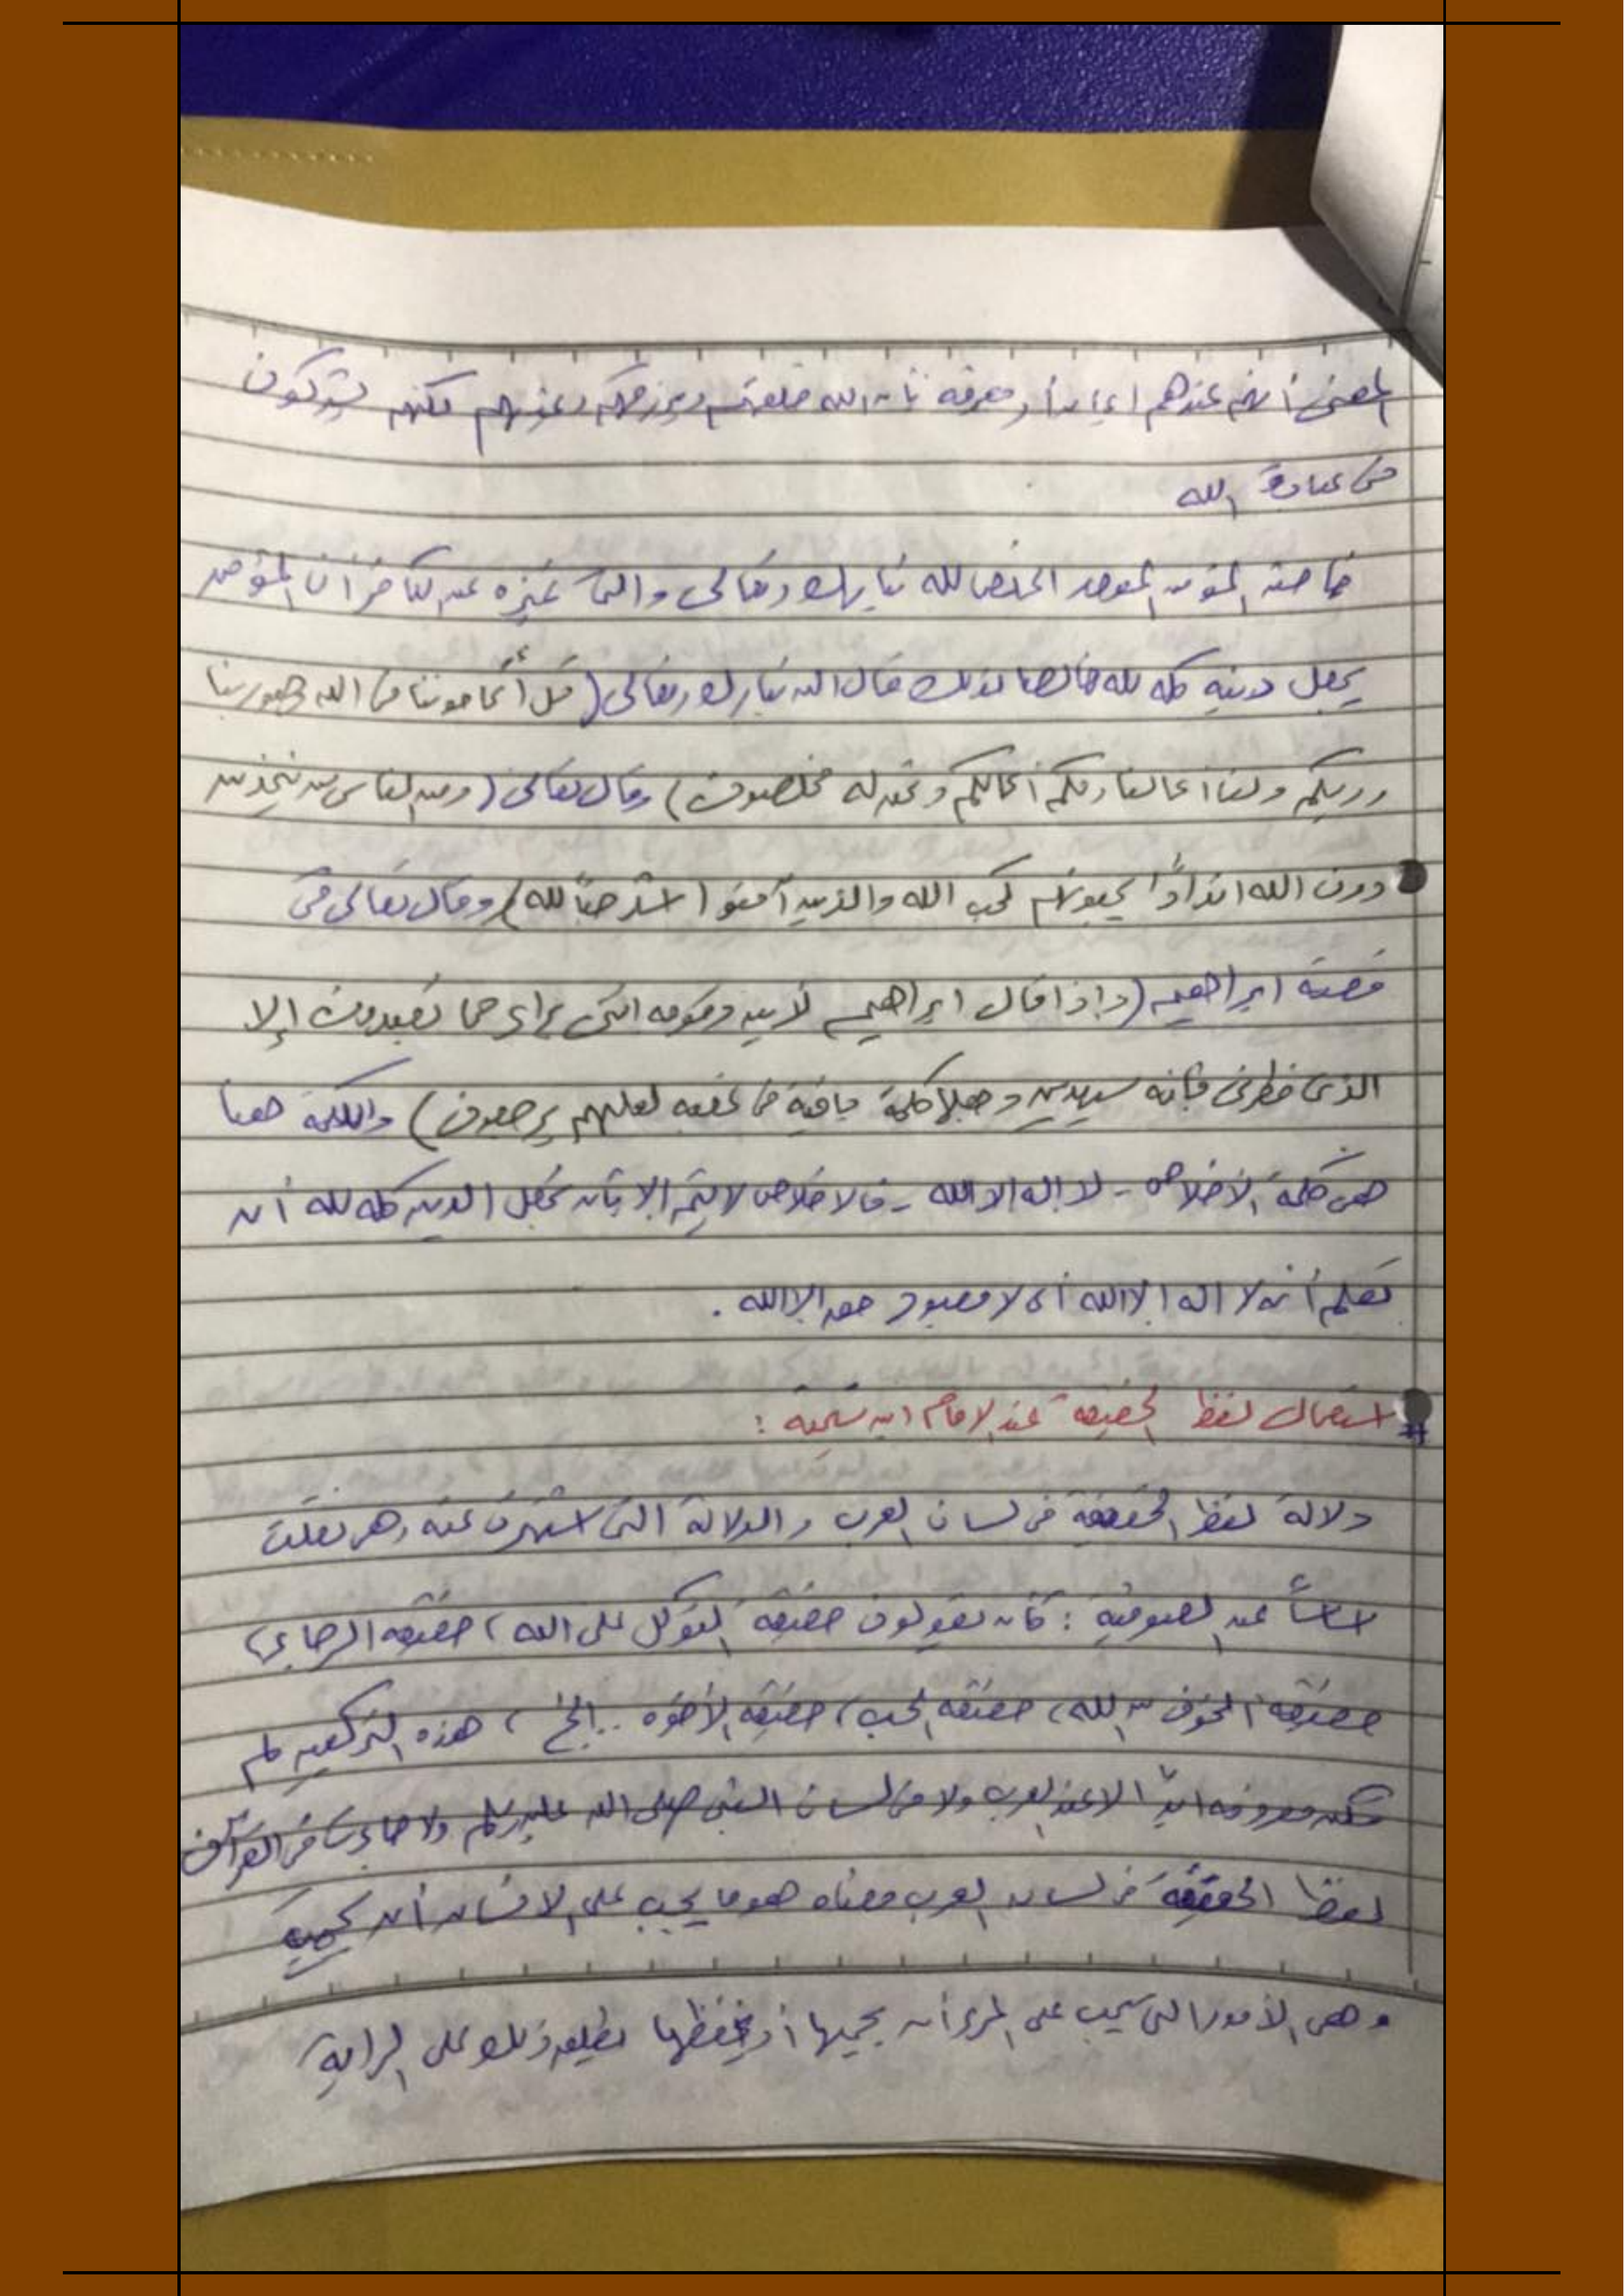 المعنى أنهم عندهم إيمانا ومعرفة بأن الله خلقهم ويرزقهم وغيرهم لكنهم يشركون
في عبادة الله
خاصة المؤمن الموحد المخلص لله تبارك وتعالى والتي تميزه عن الكافر أن المؤمن
يجعل دينه كله لله خالصا لذلك قال الله تبارك وتعالى (قل أتحاجوننا في الله وهو ربنا
وربكم ولنا أعمالنا ولكم أعمالكم ونحن له مخلصون) وقال تعالى (ومن الناس من يتخذ من
دون الله اندادًا يحبونهم كحب الله والذين آمنوا اشد حبًا لله) وقال تعالى في
قصة ابراهيم (وإذا قال ابراهيم لأبيه وقومه انني براء مما تعبدون إلا
الذي فطرني فإنه سيهدين وجعلها كلمة باقية في عقبه لعلهم يرجعون) والكلمة هنا
هي كلمة الأخلاص - لا إله الا الله - فالاخلاص لا يتم إلا بأن تجعل الدين كله لله أن
تعلم أنه لا اله إلا الله أي لا معبود حق إلا الله .
# استعمال لفظ الحقيقة عند الإمام ابن تيمية :
دلالة لفظ الحقيقة في لسان العرب والدلالة التي اشتهرت عنه وهي نقلت
اساسًا عن الصوفية : كأن يقولون حقيقة التوكل على الله ، حقيقة الرجاء ،
حقيقة الخوف من الله ، حقيقة الحب ، حقيقة الأخوة .. الخ ، هذه التركيبة لم
تكن معروفة ابدًا لا عند العرب ولا في لسان النبي صلى الله عليه وسلم ولا جاءت في القرآن
لفظ الحقيقة في لسان العرب معناه هو ما يجب على الانسان أن يحميه
وهي الأمور التي يجب على المرء أن يحميها أو يحفظها يطلق ذلك على الراية